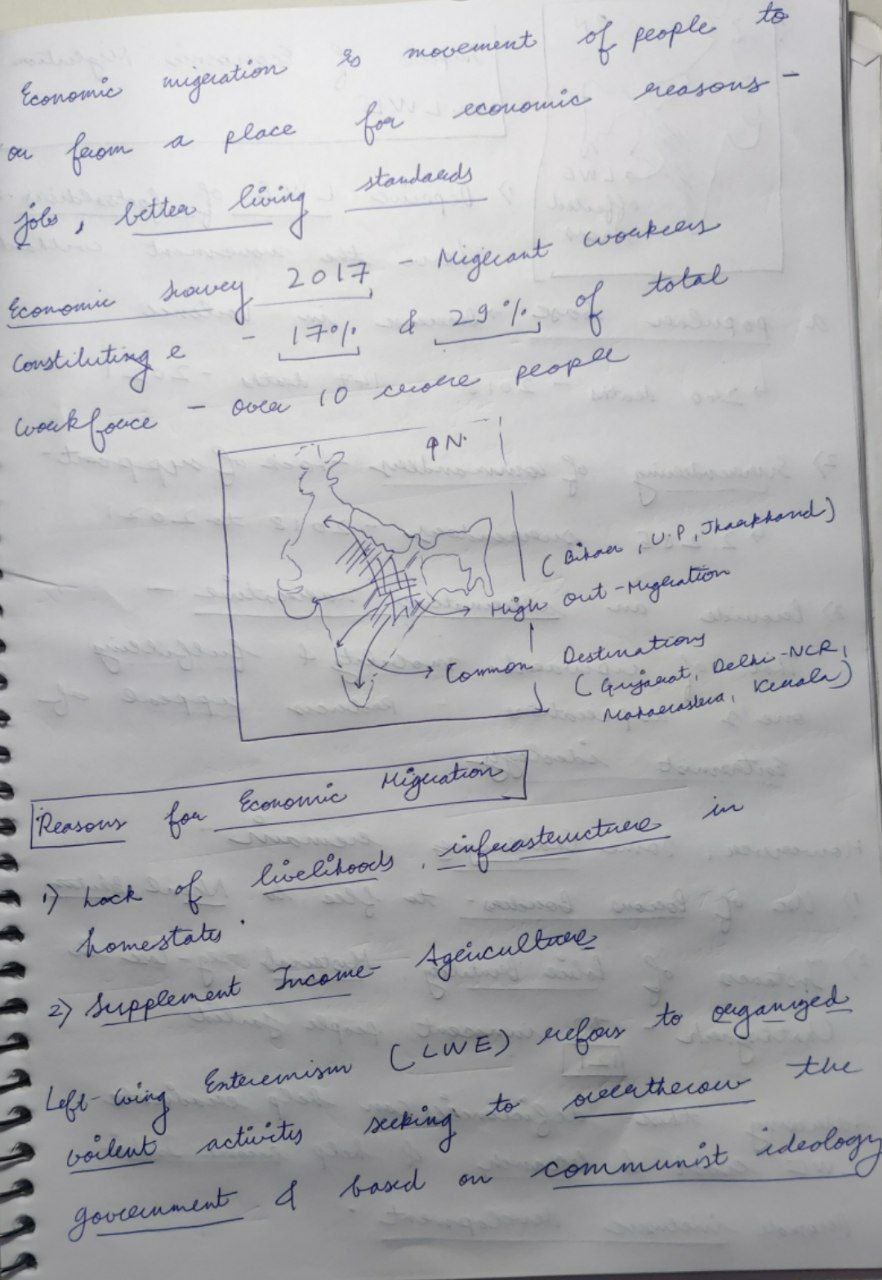 Economic migration is movement of people to
or from a place for economic reasons -
jobs, better living standards
Economic survey 2017 - Migrant workers
Constituting e - 17% & 29% of total
workforce - over 10 crore people
↑N.
(Bihar, U.P, Jharkhand)
High out-Migration
Common Destinations
(Gujarat, Delhi-NCR,
Maharastra, Kerala)
Reasons for Economic Migration
1) Lack of livelihoods, infrastructure in
homestates.
2) Supplement Income - Agriculture
Left-wing Extremism (LWE) refers to organized
voilent activities seeking to overthrow the
government & based on communist ideology